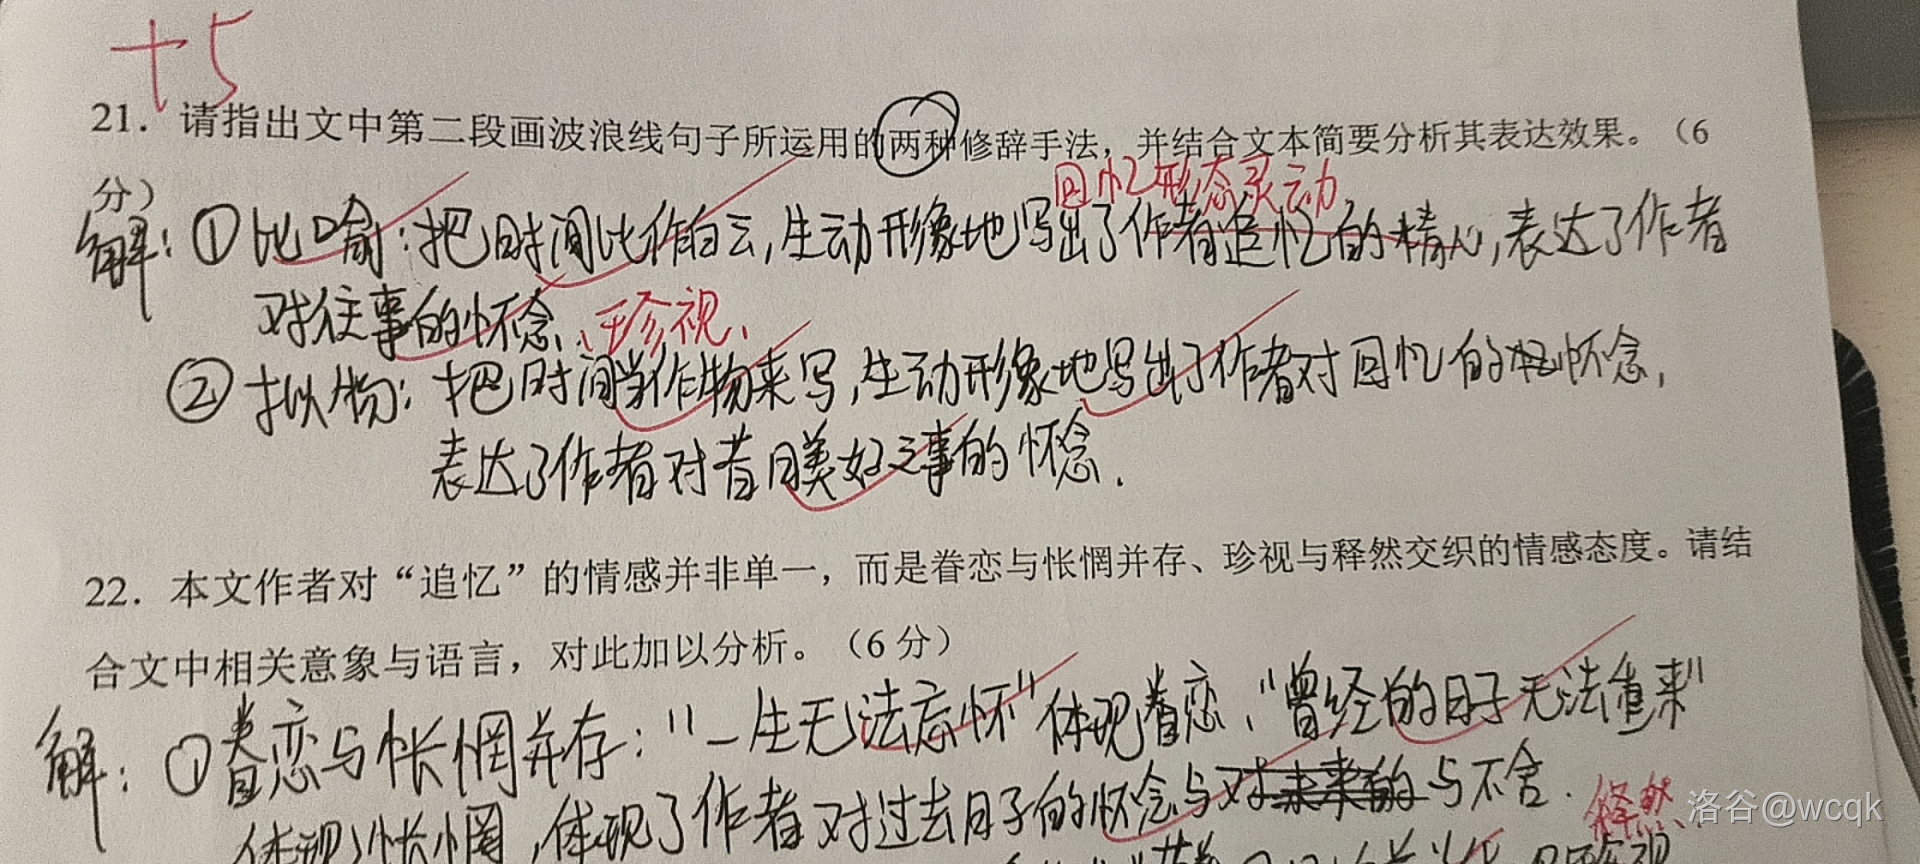 +5
21. 请指出文中第二段画波浪线句子所运用的两种修辞手法，并结合文本简要分析其表达效果。（6
分）
回忆形态灵动
解：①比喻：把时间比作白云,生动形象地写出了作者追忆的精心,表达了作者
对往事的怀念、珍视、
②拟物：把时间当作物来写,生动形象地写出了作者对回忆的怀念,
表达了作者对昔日美好之事的怀念.
22. 本文作者对“追忆”的情感并非单一，而是眷恋与怅惘并存、珍视与释然交织的情感态度。请结
合文中相关意象与语言，对此加以分析。（6 分）
解：①眷恋与怅惘并存："一生无法忘怀"体现眷恋,"曾经的日子无法重来"
体现怅惘,体现了作者对过去日子的怀念与对未来的与不舍.
释然
洛谷@wcqk